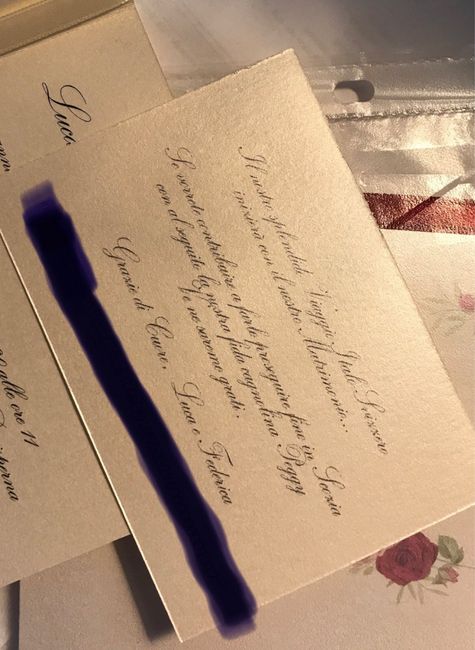 Il nostro splendido Viaggio Italo Svizzero
inizierà con il nostro Matrimonio...
Se vorrete contribuire a farlo proseguire fino in Scozia
con al seguito la nostra fida cagnolina Peggy
Ve ne saremo grati.
Grazie di Cuore, Luca e Federica
Luca
alle ore 11